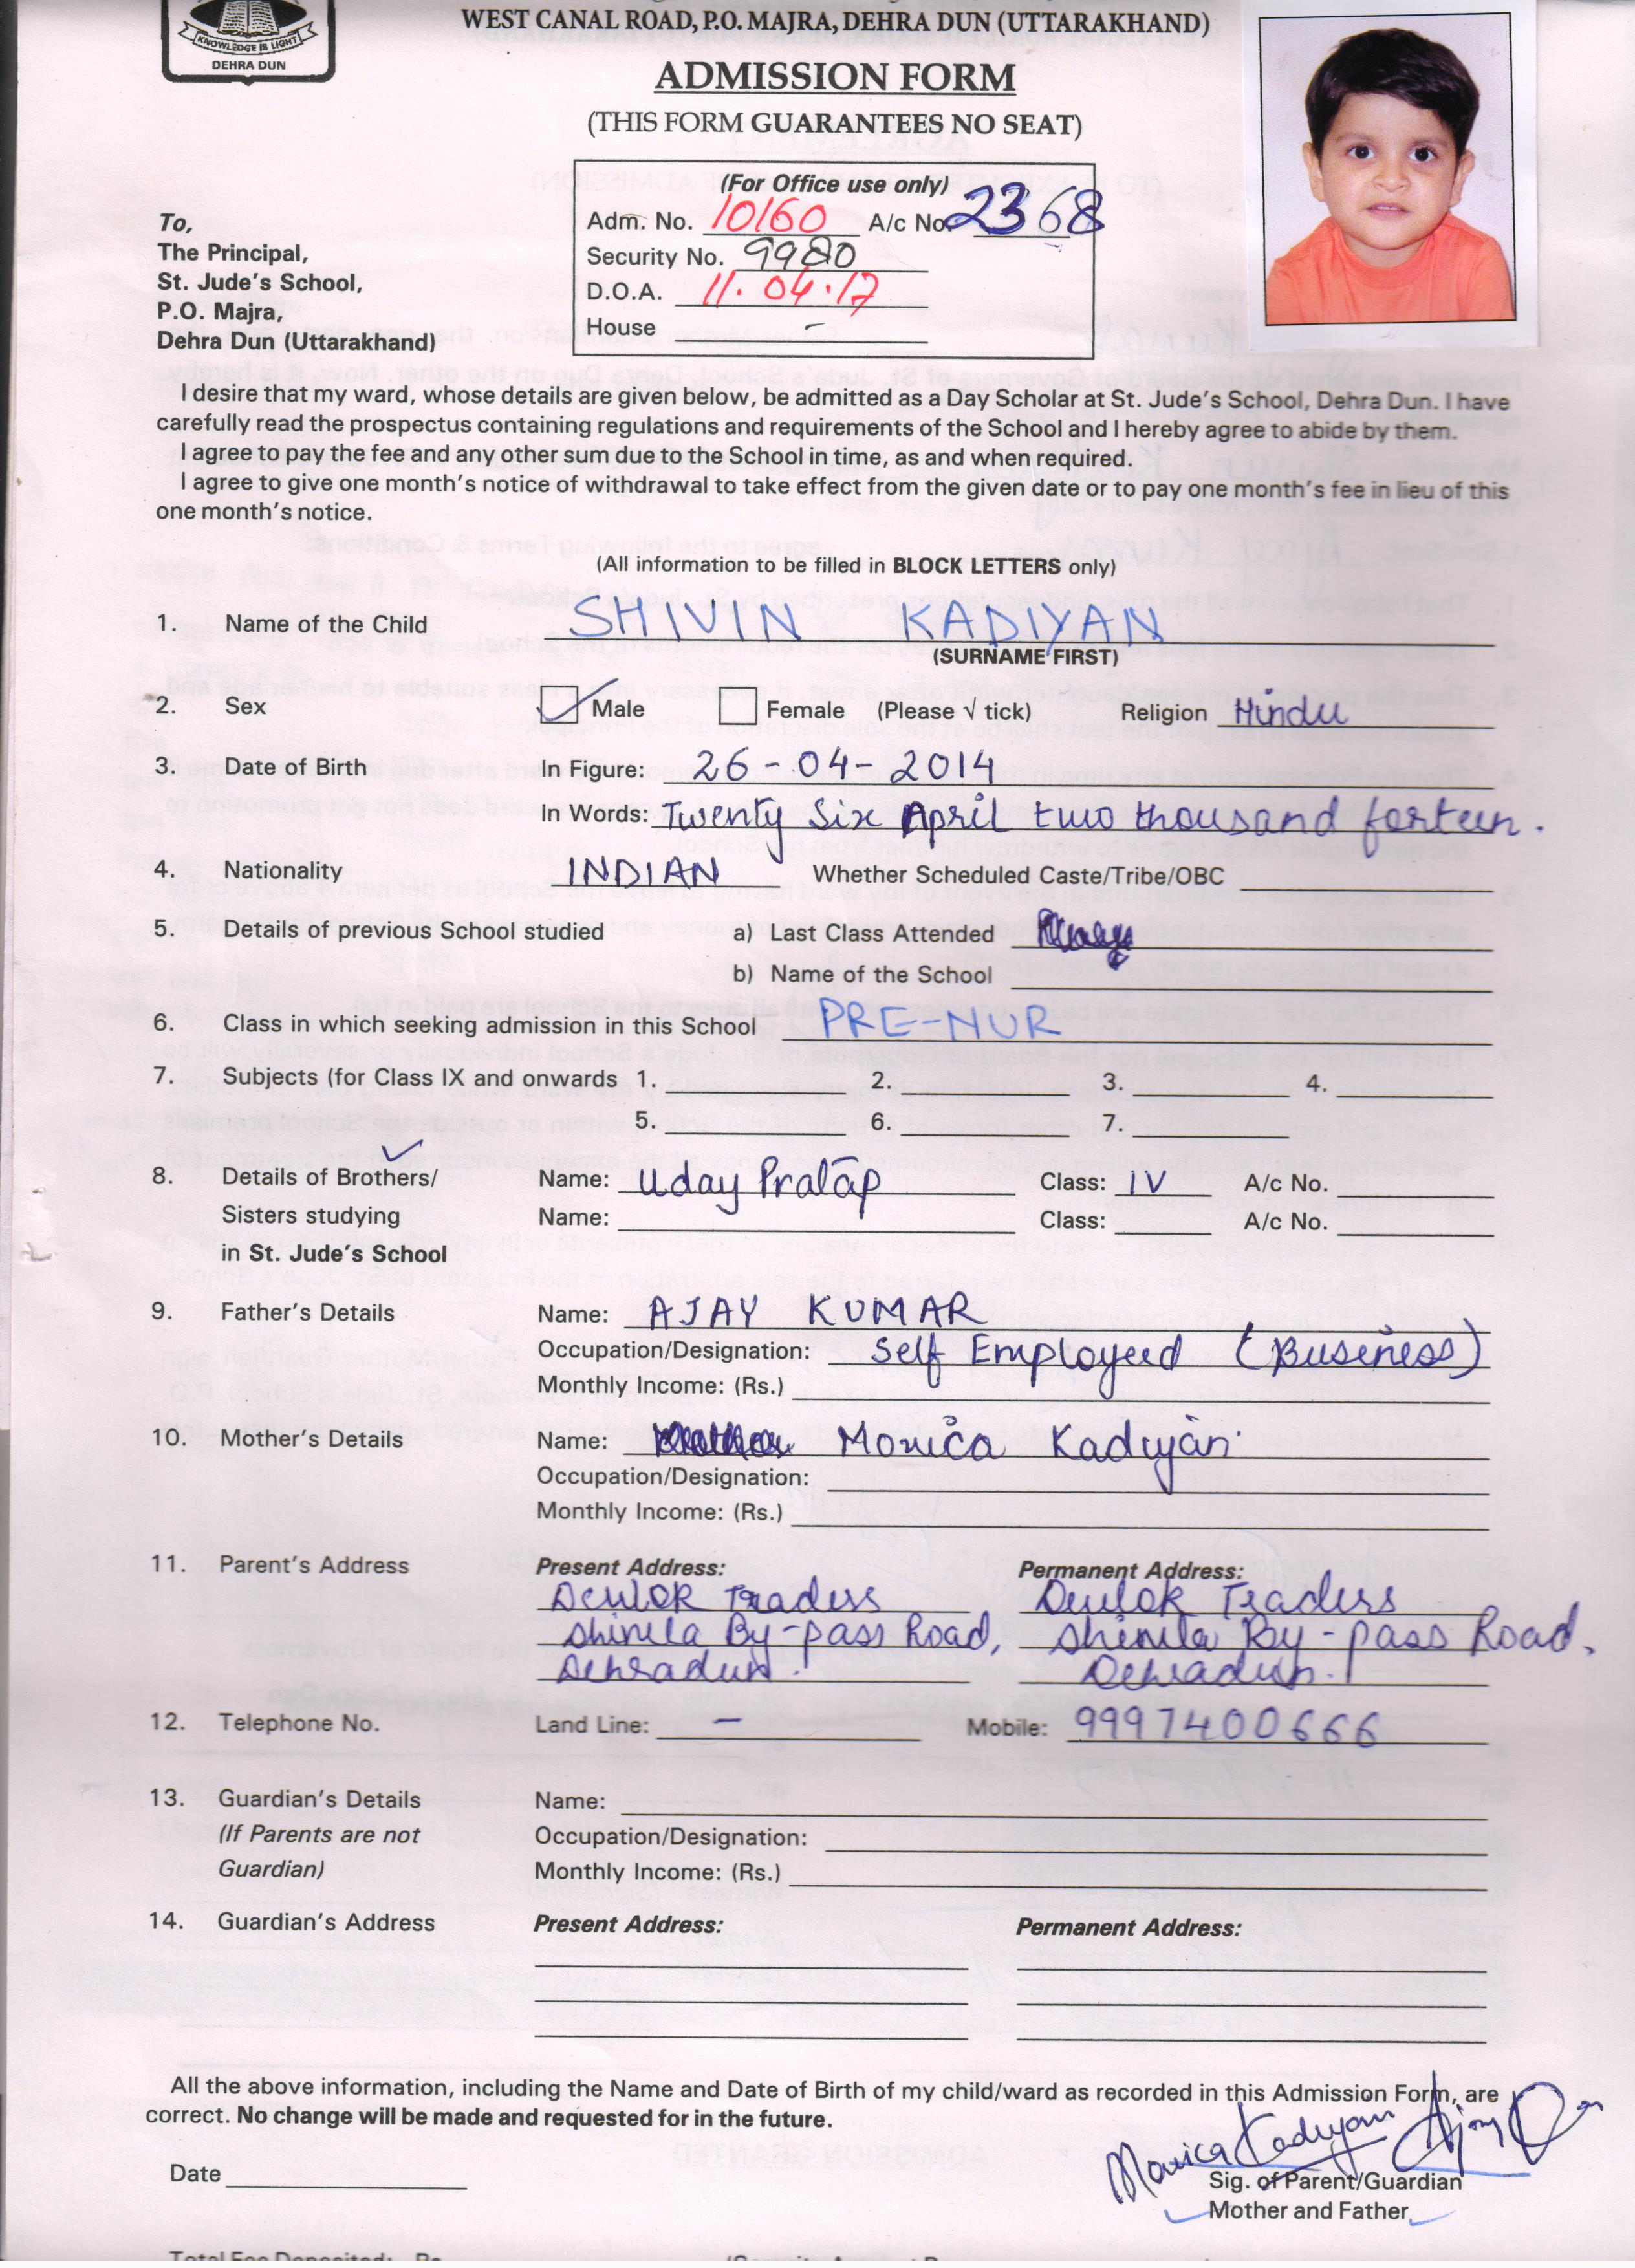 KNOWLEDGE IS LIGHT
DEHRA DUN
WEST CANAL ROAD, P.O. MAJRA, DEHRA DUN (UTTARAKHAND)
ADMISSION FORM
(THIS FORM GUARANTEES NO SEAT)
(For Office use only)
Adm. No. 10160 A/c No. 2368
Security No. 9980
D.O.A. 11.04.17
House -
To,
The Principal,
St. Jude's School,
P.O. Majra,
Dehra Dun (Uttarakhand)
I desire that my ward, whose details are given below, be admitted as a Day Scholar at St. Jude's School, Dehra Dun. I have
carefully read the prospectus containing regulations and requirements of the School and I hereby agree to abide by them.
I agree to pay the fee and any other sum due to the School in time, as and when required.
I agree to give one month's notice of withdrawal to take effect from the given date or to pay one month's fee in lieu of this
one month's notice.
(All information to be filled in BLOCK LETTERS only)
1. Name of the Child SHIVIN KADIYAN
(SURNAME FIRST)
2. Sex Male Female (Please √ tick) Religion Hindu
3. Date of Birth In Figure: 26-04-2014
In Words: Twenty Six April two thousand forteen.
4. Nationality INDIAN Whether Scheduled Caste/Tribe/OBC
5. Details of previous School studied a) Last Class Attended
b) Name of the School
6. Class in which seeking admission in this School PRE-NUR
7. Subjects (for Class IX and onwards 1. 2. 3. 4.
5. 6. 7.
8. Details of Brothers/ Name: Uday Pratap Class: IV A/c No.
Sisters studying Name: Class: A/c No.
in St. Jude's School
9. Father's Details Name: AJAY KUMAR
Occupation/Designation: Self Employeed (Business)
Monthly Income: (Rs.)
10. Mother's Details Name: Monica Kadiyan
Occupation/Designation:
Monthly Income: (Rs.)
11. Parent's Address Present Address: Permanent Address:
Devlok Traders Devlok Traders
Shimla By-pass Road, Shimla By-pass Road,
Dehradun. Dehradun.
12. Telephone No. Land Line: - Mobile: 9997400666
13. Guardian's Details Name:
(If Parents are not Occupation/Designation:
Guardian) Monthly Income: (Rs.)
14. Guardian's Address Present Address: Permanent Address:
All the above information, including the Name and Date of Birth of my child/ward as recorded in this Admission Form, are
correct. No change will be made and requested for in the future.
Monica Kadiyan Ajay
Date Sig. of Parent/Guardian
Mother and Father